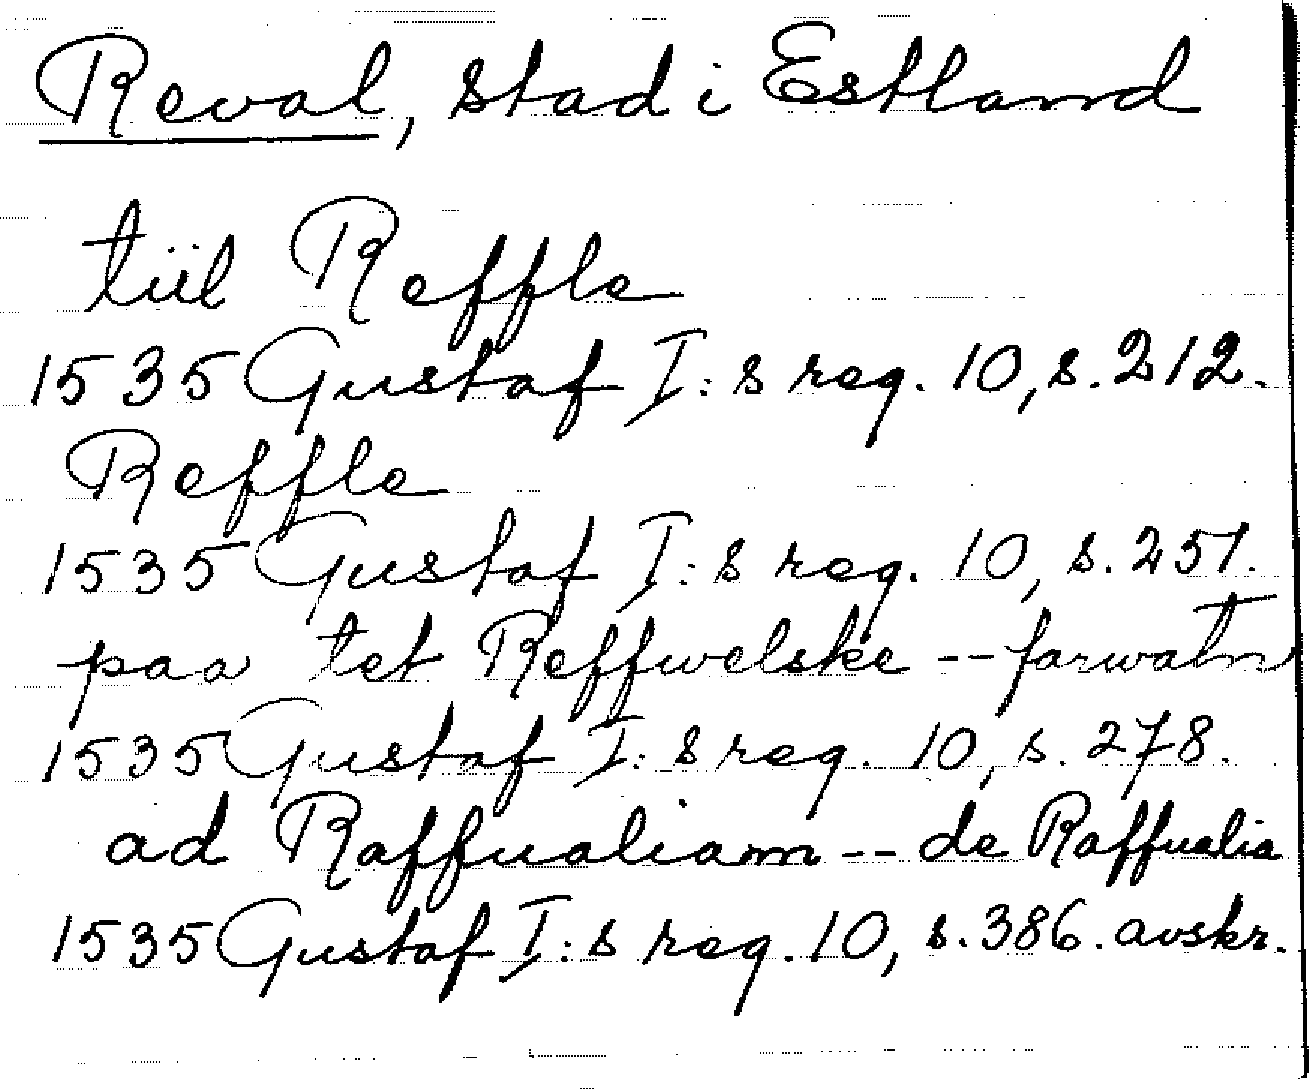 Reval, stad i Estland
tiil Reffle
1535 Gustaf I:s reg. 10, s. 212.
Reffle
1535 Gustaf I:s reg. 10, s. 251.
paa tet Reffwelske -- farwatn
1535 Gustaf I:s reg. 10, s. 278.
ad Raffualiam -- de Raffualia
1535 Gustaf I:s reg. 10, s. 386. avskr.